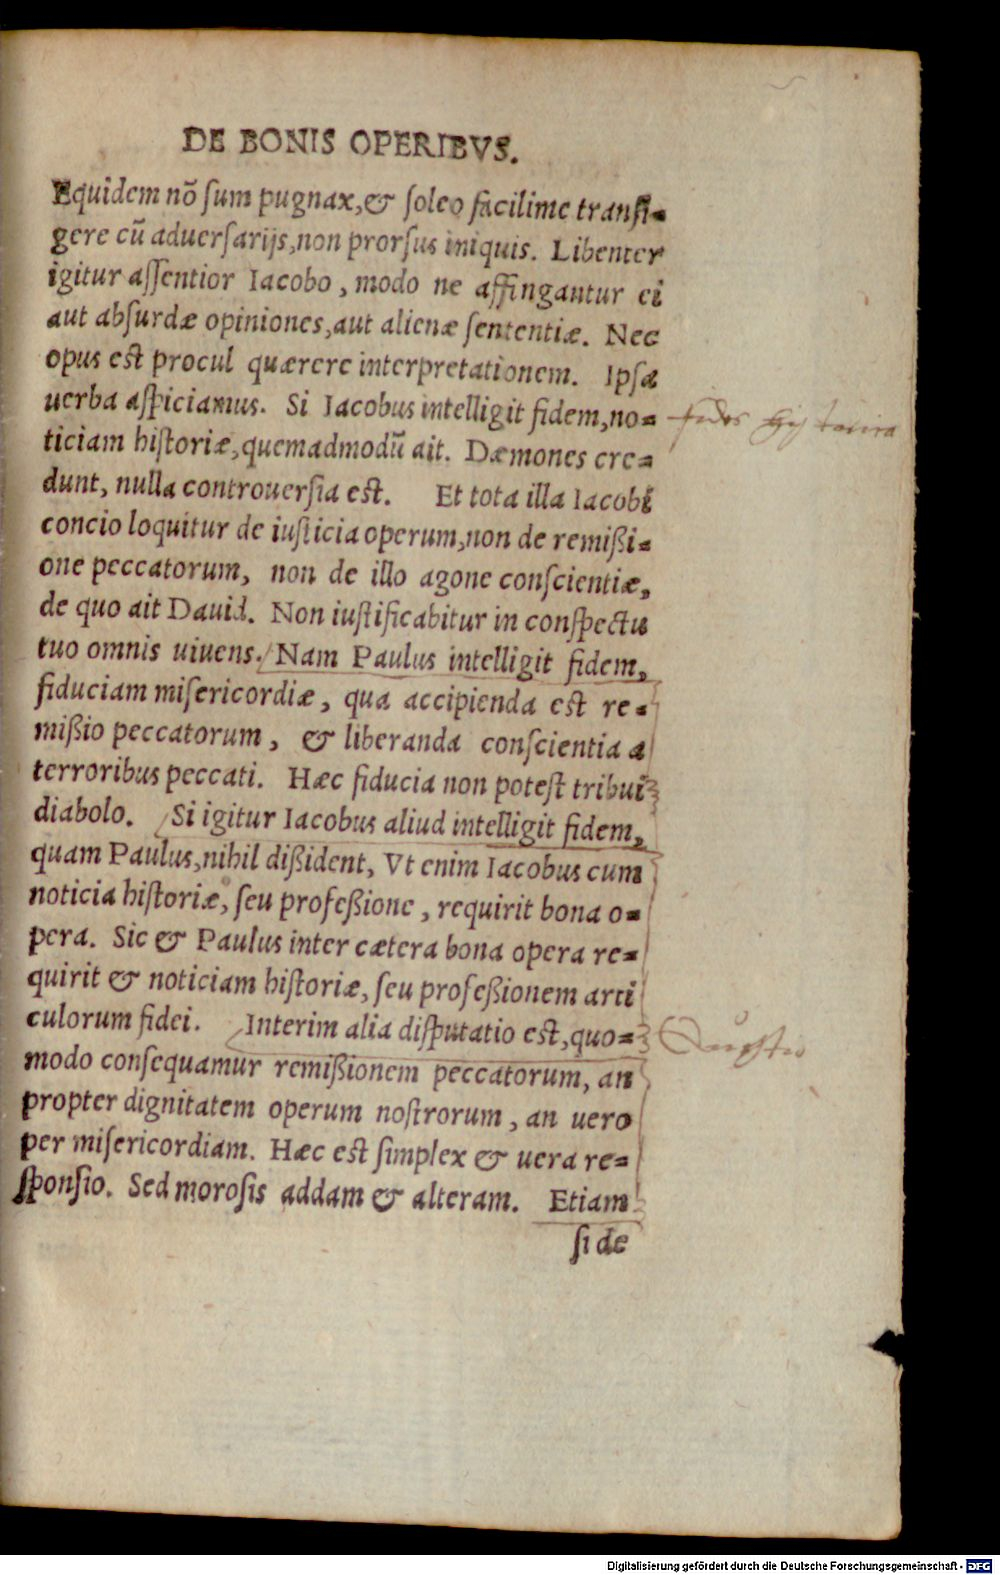 DE BONIS OPERIBVS.
Equidem nō ſum pugnax,& ſoleo facilime tranſi-
gere cū aduerſarijs,non prorſus iniquis. Libenter
igitur aſſentior Iacobo, modo ne affingantur ei
aut abſurdæ opiniones,aut alienæ ſententiæ. Nec
opus eſt procul quærere interpretationem. Ipſa
uerba aſpiciamus. Si Iacobus intelligit fidem,no-
ticiam hiſtoriæ,quemadmodū ait. Dæmones cre-
dunt, nulla controuerſia eſt. Et tota illa Iacobi
concio loquitur de iuſticia operum,non de remißi-
one peccatorum, non de illo agone conſcientiæ,
de quo ait Dauid. Non iuſtificabitur in conſpectu
tuo omnis uiuens. Nam Paulus intelligit fidem,
fiduciam miſericordiæ, qua accipienda est re-
mißio peccatorum, & liberanda conſcientia a
terroribus peccati. Hæc fiducia non poteſt tribui
diabolo. Si igitur Iacobus aliud intelligit fidem,
quam Paulus,nihil dißident, Vt enim Iacobus cum
noticia hiſtoriæ, ſeu profeßione, requirit bona o-
pera. Sic & Paulus inter cætera bona opera re-
quirit & noticiam hiſtoriæ, ſeu profeßionem arti
culorum fidei. Interim alia diſputatio est,quo-
modo conſequamur remißionem peccatorum, an
propter dignitatem operum noſtrorum, an uero
per miſericordiam. Hæc est ſimplex & uera re-
ſponſio. Sed moroſis addam & alteram. Etiam
ſi de
fides
Digitalisierung gefördert durch die Deutsche Forschungsgemeinschaft - DFG